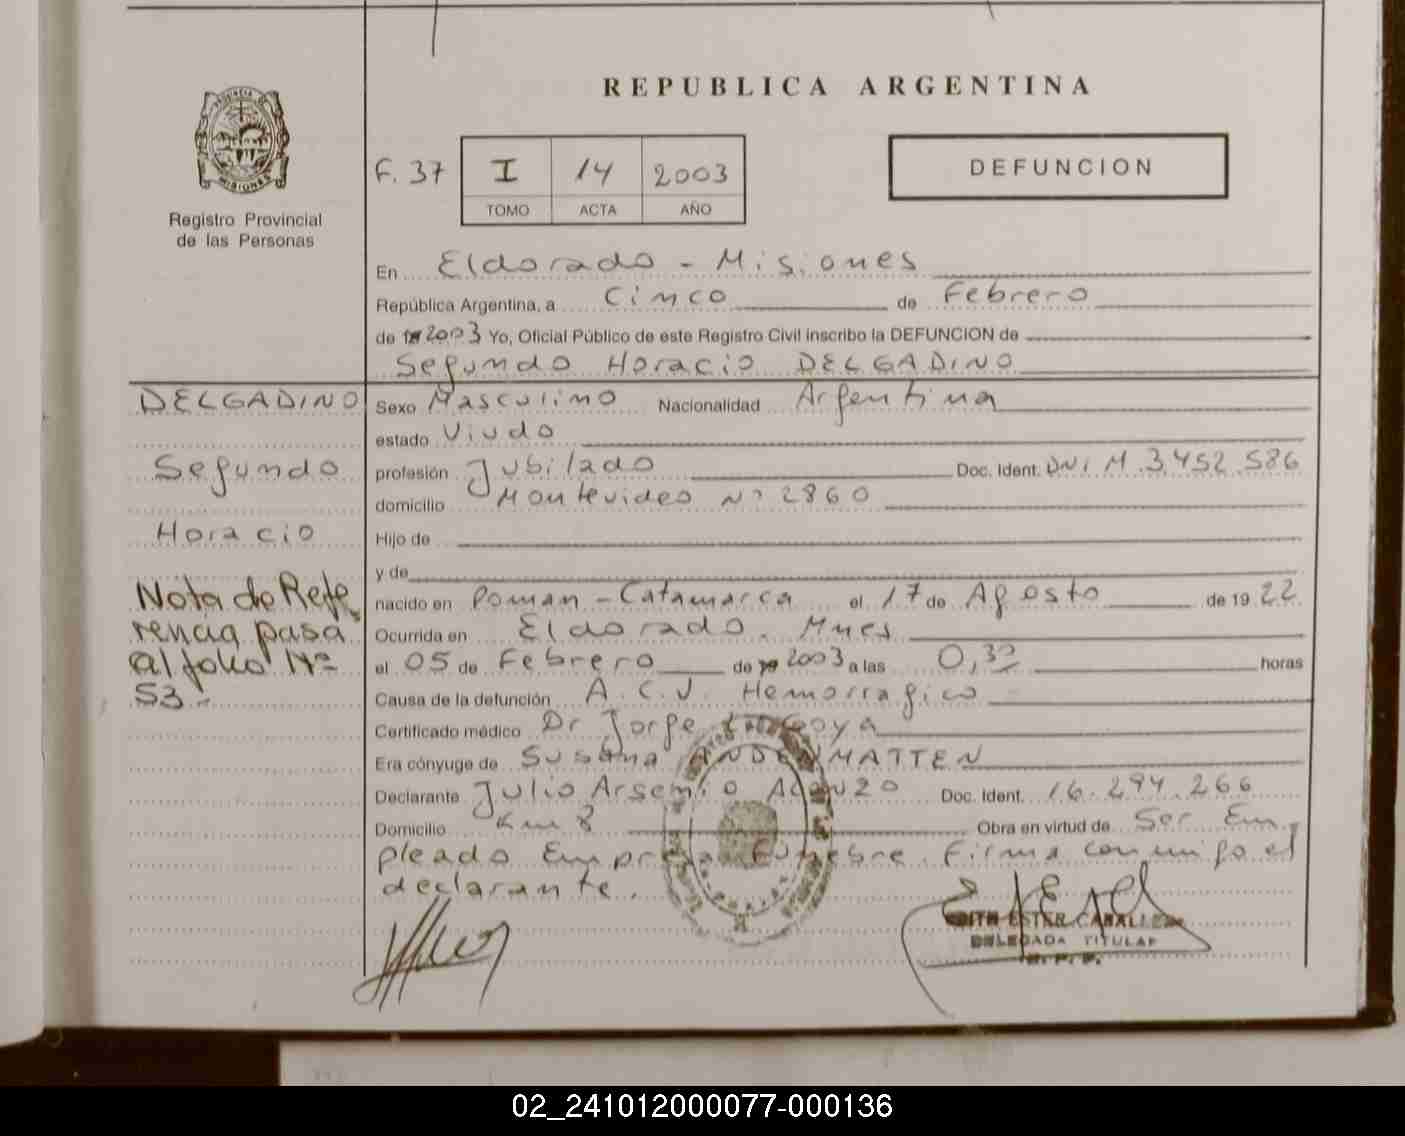 REPUBLICA ARGENTINA
PROVINCIA DE
MISIONES
Registro Provincial
de las Personas
F. 37
I 14 2003
TOMO ACTA AÑO
DEFUNCION
En Eldorado - Misiones
República Argentina, a Cinco de Febrero
de 2003 Yo, Oficial Público de este Registro Civil inscribo la DEFUNCION de
Segundo Horacio DELGADINO
DELGADINO
Segundo
Horacio
Nota de Refe
rencia pasa
al folio Nº
53.-
Sexo Masculino Nacionalidad Argentina
estado Viudo
profesión Jubilado Doc. Ident. DNI. M. 3.452.586
domicilio Montevideo Nº 2860
Hijo de
y de
nacido en Poman - Catamarca el 17 de Agosto de 19 22
Ocurrida en Eldorado. Mnes
el 05 de Febrero de 2003 a las 0,30 horas
Causa de la defunción A.C.V. Hemorragico
Certificado médico Dr Jorge Goya
Era cónyuge de Susana ANDENMATTEN
Declarante Julio Arsenio Doc. Ident. 16.294.266
Domicilio Km 8 Obra en virtud de Ser Em
pleado Empresa Funebre. Firma conmigo el
declarante.
EDITH ESTER CABALLE
DELEGADA TITULAR
R. P. P.
02_241012000077-000136